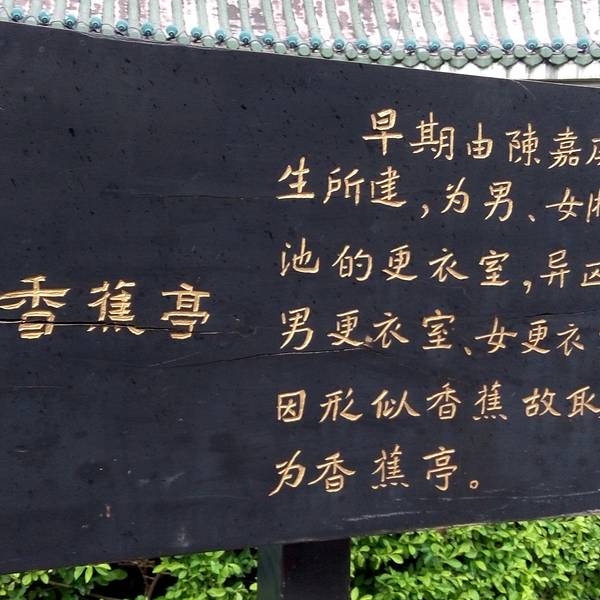 香蕉亭
早期由陳嘉
生所建，为男、女
池的更衣室，异
男更衣室、女更衣
因形似香蕉故取
为香蕉亭。